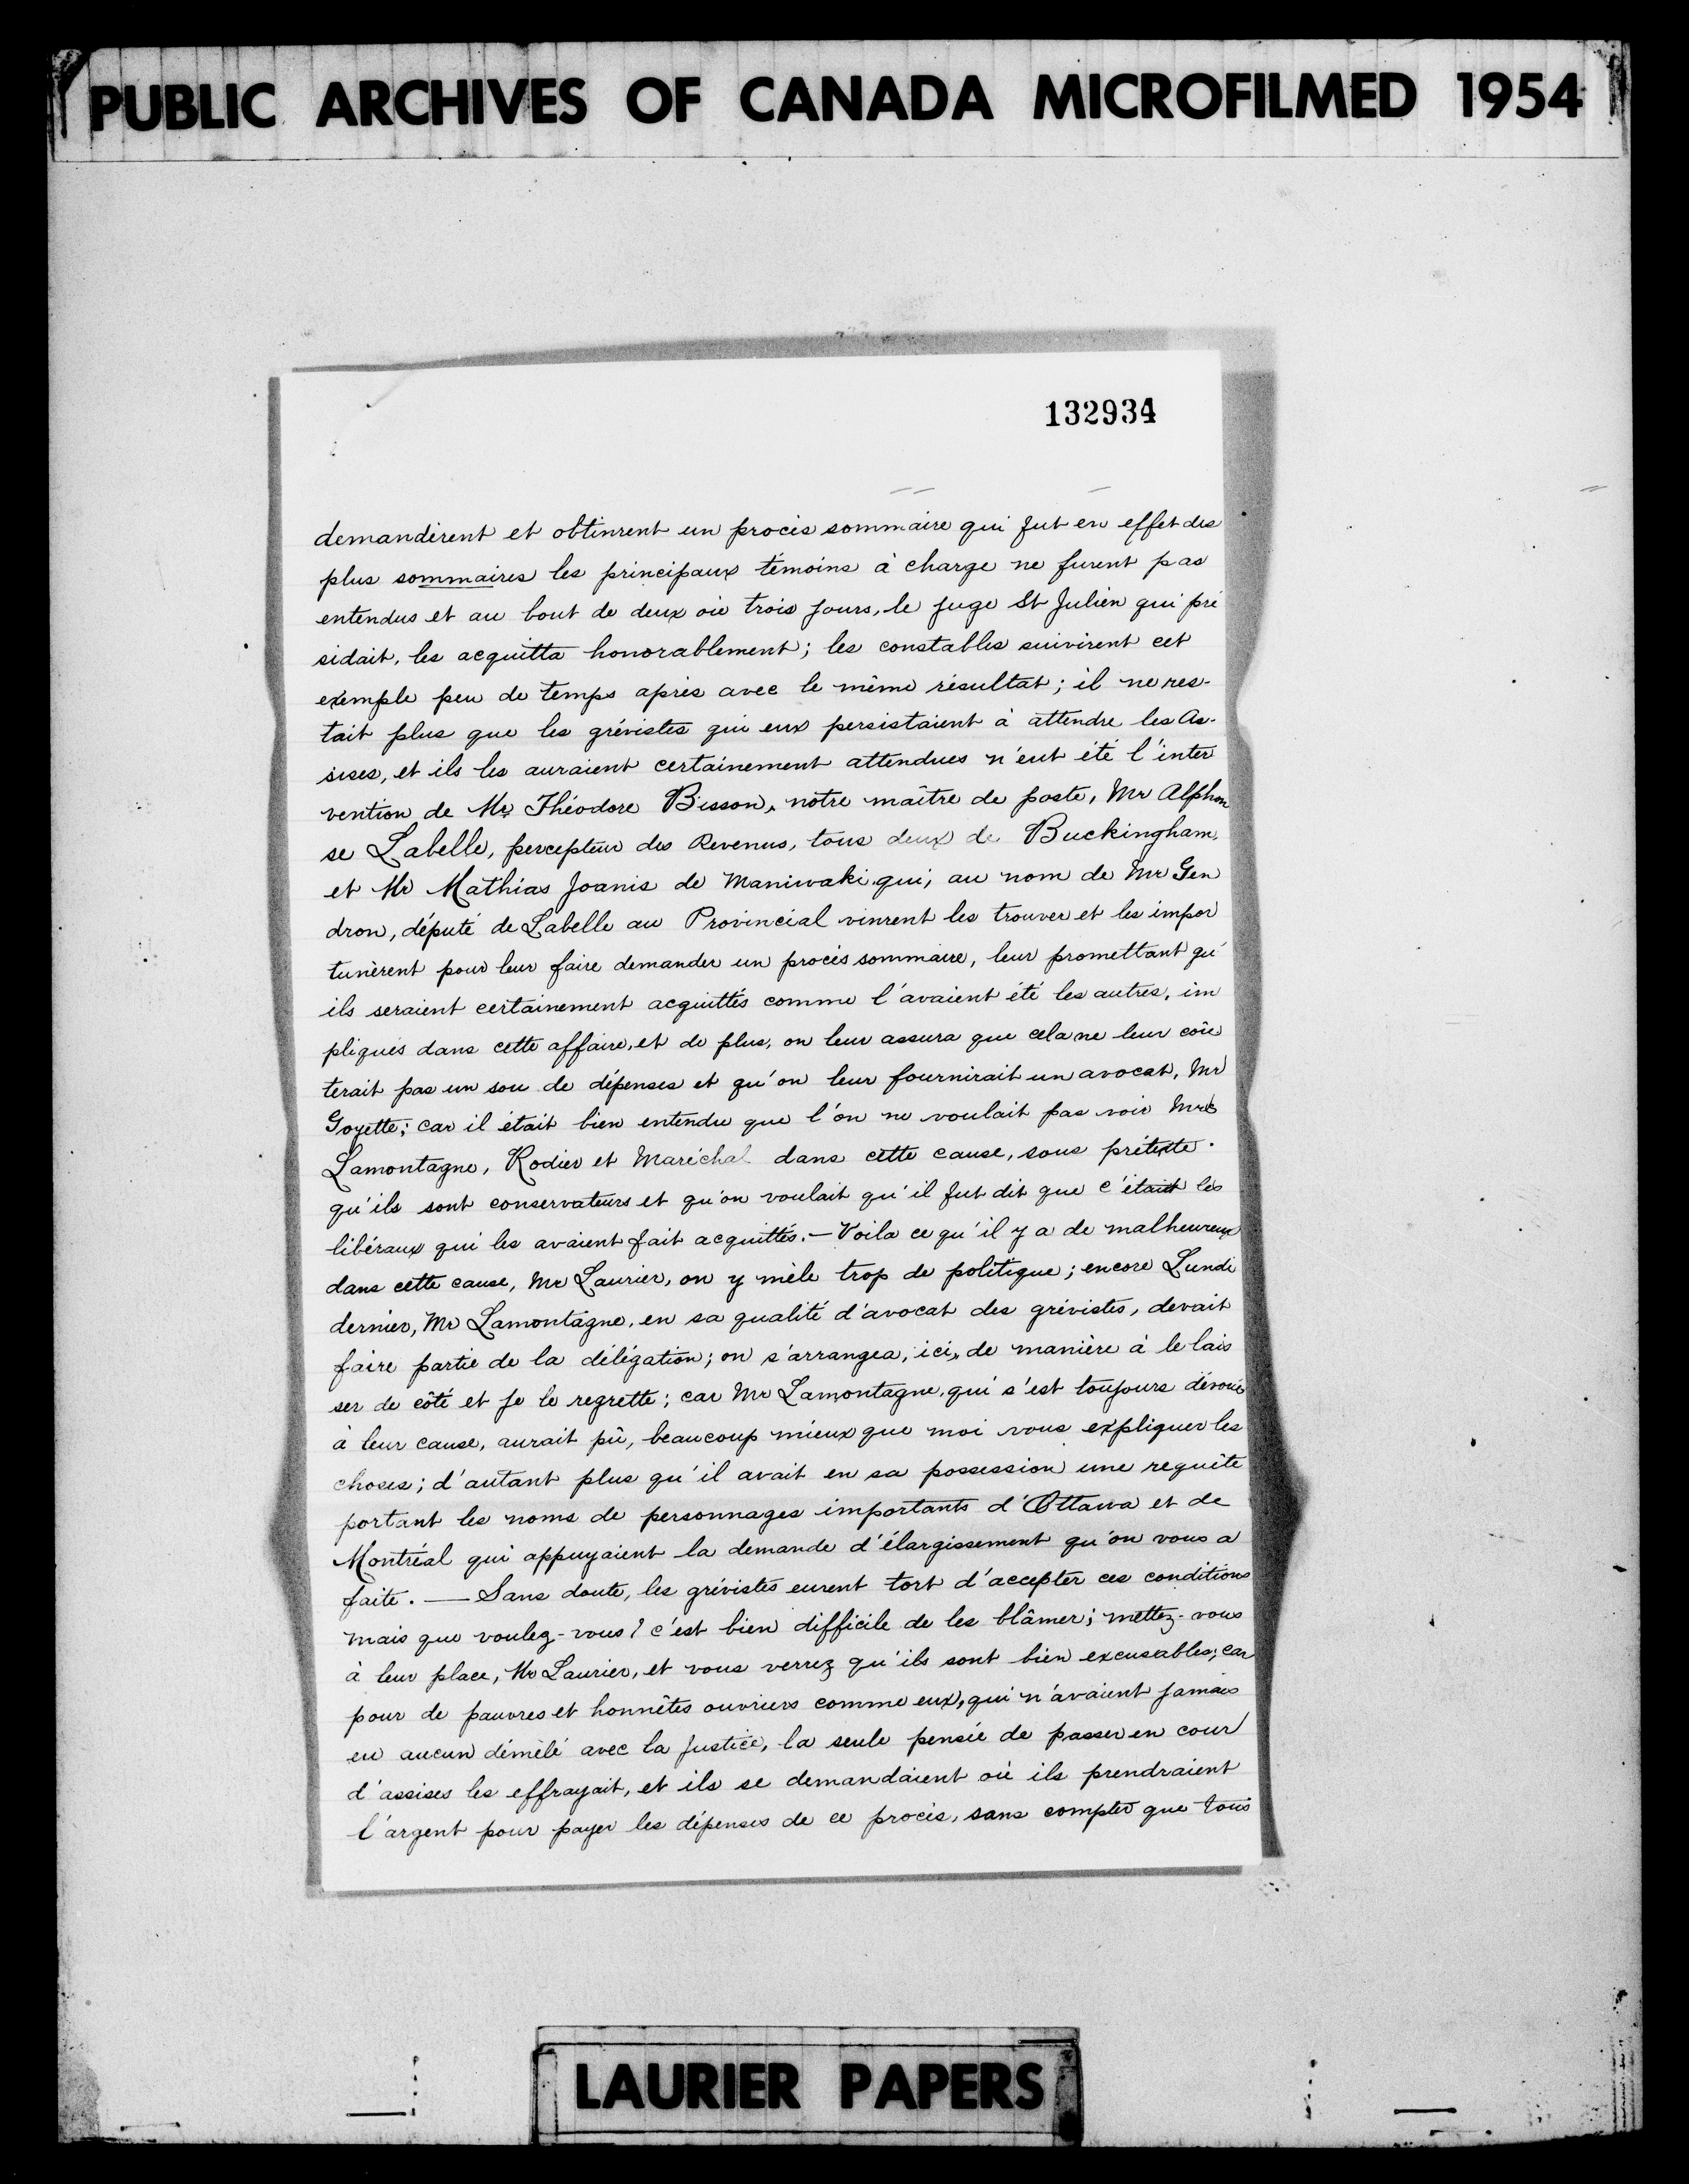 PUBLIC ARCHIVES OF CANADA MICROFILMED 1954
132934
demandèrent et obtinrent un procès sommaire qui fut en effet des
plus sommaires les principaux témoins à charge ne furent pas
entendus et au bout de deux où trois jours, le juge St Julien qui pré
sidait, les acquitta honorablement; les constables suivirent cet
exemple peu de temps après avec le même résultat; il ne res-
tait plus que les grévistes qui eux persistaient à attendre les As-
sises, et ils les auraient certainement attendues n'eut été l'inter
vention de Mr Théodore Bisson, nôtre maître de poste, Mr Alphon
se Labelle, percepteur des Revenus, tous deux de Buckingham,
et Mr Mathias Joanis de Maniwaki qui, au nom de Mr Gen
dron, député de Labelle au Provincial vinrent les trouver et les impor
tunèrent pour leur faire demander un procès sommaire, leur promettant qu'
ils seraient certainement acquittés comme l'avaient été les autres, im
pliqués dans cette affaire, et de plus, on leur assura que cela ne leur coû
terait pas un sou de dépenses et qu'on leur fournirait un avocat, Mr
Goyette; car il était bien entendu que l'on ne voulait pas voir Mrs
Lamontagne, Rodier et Maréchal dans cette cause, sous prétexte
qu'ils sont conservateurs et qu'on voulait qu'il fut dit que c'étaient les
libéraux qui les avaient fait acquittés. — Voila ce qu'il y a de malheureux
dans cette cause, Mr Laurier, on y mèle trop de politique; encore Lundi
dernier, Mr Lamontagne, en sa qualité d'avocat des grévistes, devait
faire partie de la délégation; on s'arrangea, ici, de manière à le lais
ser de côté et je le regrette; car Mr Lamontagne, qui s'est toujours dévoué
à leur cause, aurait pû, beaucoup mieux que moi vous expliquer les
choses; d'autant plus qu'il avait en sa possession une requête
portant les noms de personnages importants d'Ottawa et de
Montréal qui appuyaient la demande d'élargissement qu'on vous a
faite. — Sans doute, les grévistes eurent tort d'accepter ces conditions
mais que voulez-vous? c'est bien difficile de les blâmer; mettez-vous
à leur place, Mr Laurier, et vous verrez qu'ils sont bien excusables; car
pour de pauvres et honnêtes ouvriers comme eux, qui n'avaient jamais
eu aucun démêlé avec la justice, la seule pensée de passer en cour
d'assises les effrayait, et ils se demandaient où ils prendraient
l'argent pour payer les dépenses de ce procès, sans compter que tous
LAURIER PAPERS